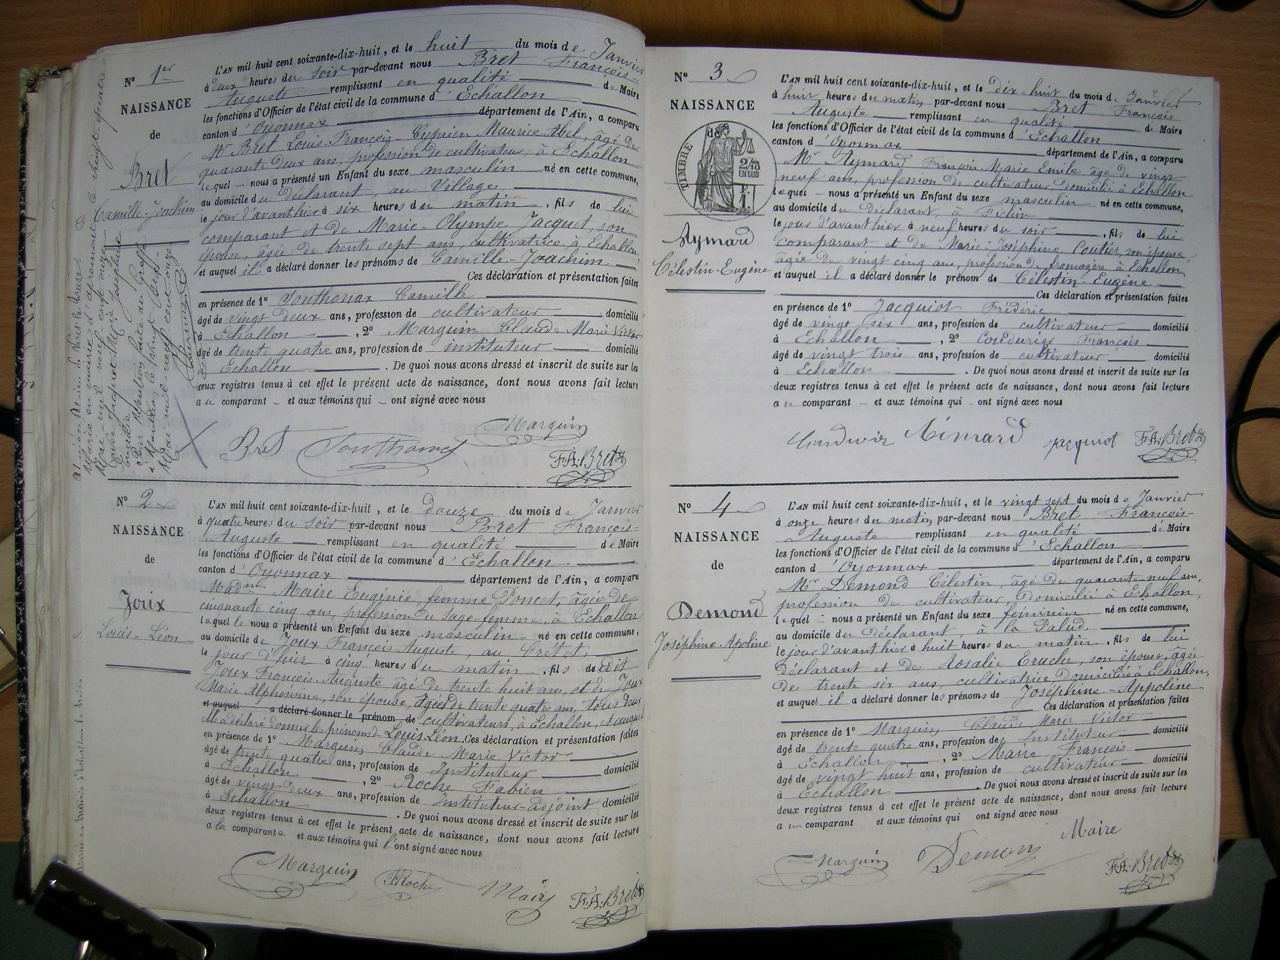 N° 1er
NAISSANCE
de
Bret
Camille-Joachim
L'AN mil huit cent soixante-dix-huit, et le huit du mois de Janvier
à deux heures du soir par-devant nous Bret François-
Auguste remplissant en qualité de Maire
les fonctions d'Officier de l'état civil de la commune d'Echallon
canton d'Oyonnax département de l'Ain, a comparu
Mr Bret Louis François Cyprien Maurice Abel, âgé de
quarante deux ans, profession de cultivateur, à Echallon
lequel nous a présenté un Enfant du sexe masculin né en cette commune,
au domicile du déclarant au Village
le jour d'avant hier à six heures du matin, fils de lui
comparant et de Marie-Olympe Jacquet, son
épouse, âgée de trente sept ans, cultivatrice à Echallon
et auquel il a déclaré donner les prénoms de Camille-Joachim
Ces déclaration et présentation faites
en présence de 1° Sonthonax Camille
âgé de vingt deux ans, profession de cultivateur domicilié
à Echallon, 2° Marquin Claude Marie Victor
âgé de trente quatre ans, profession de instituteur domicilié
Echallon. De quoi nous avons dressé et inscrit de suite sur les
deux registres tenus à cet effet le présent acte de naissance, dont nous avons fait lecture
au comparant et aux témoins qui ont signé avec nous
Marquin
Bret Sonthonax F.A. Bret
N° 2
NAISSANCE
de
Joux
Louis-Léon
L'AN mil huit cent soixante-dix-huit, et le douze du mois de Janvier
à quatre heures du soir par-devant nous Bret François-
Auguste remplissant en qualité de Maire
les fonctions d'Officier de l'état civil de la commune d'Echallon
canton d'Oyonnax département de l'Ain, a comparu
Madme Maire Eugénie, femme Poncet, âgée de
cinquante cinq ans profession de sage femme, à Echallon
lequel nous a présenté un Enfant du sexe masculin né en cette commune,
au domicile de Joux François Auguste au Crétet
le jour d'hier à cinq heures du matin, fils de
Joux François-Auguste âgé de trente huit ans, et de Joux
Marie Alphonsine, son épouse, âgée de trente quatre ans, tous deux
et auquel a déclaré donner le prénom de cultivateurs, à Echallon, et auquel
Louis Léon. Ces déclaration et présentation faites
en présence de 1° Marquin Claude Marie Victor
âgé de trente quatre ans, profession de Instituteur domicilié
à Echallon, 2° Roche Fabien
âgé de vingt deux ans, profession de Instituteur-adjoint domicilié
à Echallon. De quoi nous avons dressé et inscrit de suite sur les
deux registres tenus à cet effet le présent acte de naissance, dont nous avons fait lecture
a la comparante et aux témoins qui ont signé avec nous
Marquin Roche Maire F.A. Bret
N° 3
NAISSANCE
TIMBRE
de
Aymard
Célestin-Eugène
L'AN mil huit cent soixante-dix-huit, et le Dix huit du mois de Janvier
à huit heures du matin par-devant nous Bret François
Auguste remplissant en qualité de Maire
les fonctions d'Officier de l'état civil de la commune d'Echallon
canton d'Oyonnax département de l'Ain, a comparu
Mr Aymard François Marie Emile âgé de vingt
neuf ans, profession de cultivateur Domicilié à Echallon
lequel nous a présenté un Enfant du sexe masculin né en cette commune,
au domicile du déclarant, à
le jour d'avant hier à neuf heures du soir, fils de lui
comparant et de Marie-Joséphine Coutier son épouse
âgée de vingt cinq ans, profession de à Echallon
et auquel il a déclaré donner le prénom de Célestin-Eugène
Ces déclaration et présentation faites
en présence de 1° Jacquiot Frédéric
âgé de vingt six ans, profession de cultivateur domicilié
à Echallon, 2° François
âgé de vingt trois ans, profession de cultivateur domicilié
à Echallon. De quoi nous avons dressé et inscrit de suite sur les
deux registres tenus à cet effet le présent acte de naissance, dont nous avons fait lecture
a u comparant et aux témoins qui ont signé avec nous
Aimard Jacquiot F.A. Bret
N° 4
NAISSANCE
de
Demond
Joséphine Apoline
L'AN mil huit cent soixante-dix-huit, et le vingt sept du mois de Janvier
à onze heures du matin par-devant nous Bret François-
Auguste remplissant en qualité de Maire
les fonctions d'Officier de l'état civil de la commune d'Echallon
canton d'Oyonnax département de l'Ain, a comparu
Mr Demond Célestin, âgé de quarante neuf ans,
profession de cultivateur, Domicilié à Echallon,
lequel nous a présenté un Enfant du sexe féminin né en cette commune,
au domicile du Déclarant à la Palud
le jour d'avant hier à huit heures du matin, fils de lui
Déclarant et de Rosalie Eruche, son épouse, âgée
De trente six ans, cultivatrice Domiciliée à Echallon,
et auquel il a déclaré donner les prénoms de Joséphine-Appoline
Ces déclaration et présentation faites
en présence de 1° Marquin, Claude Marie Victor
âgé de trente quatre ans, profession de Instituteur domicilié
à Echallon, 2° Maire François
âgé de vingt huit ans, profession de cultivateur domicilié
à Echallon. De quoi nous avons dressé et inscrit de suite sur les
deux registres tenus à cet effet le présent acte de naissance, dont nous avons fait lecture
a u comparant et aux témoins qui ont signé avec nous
Maire
Marquin Demond F.A. Bret